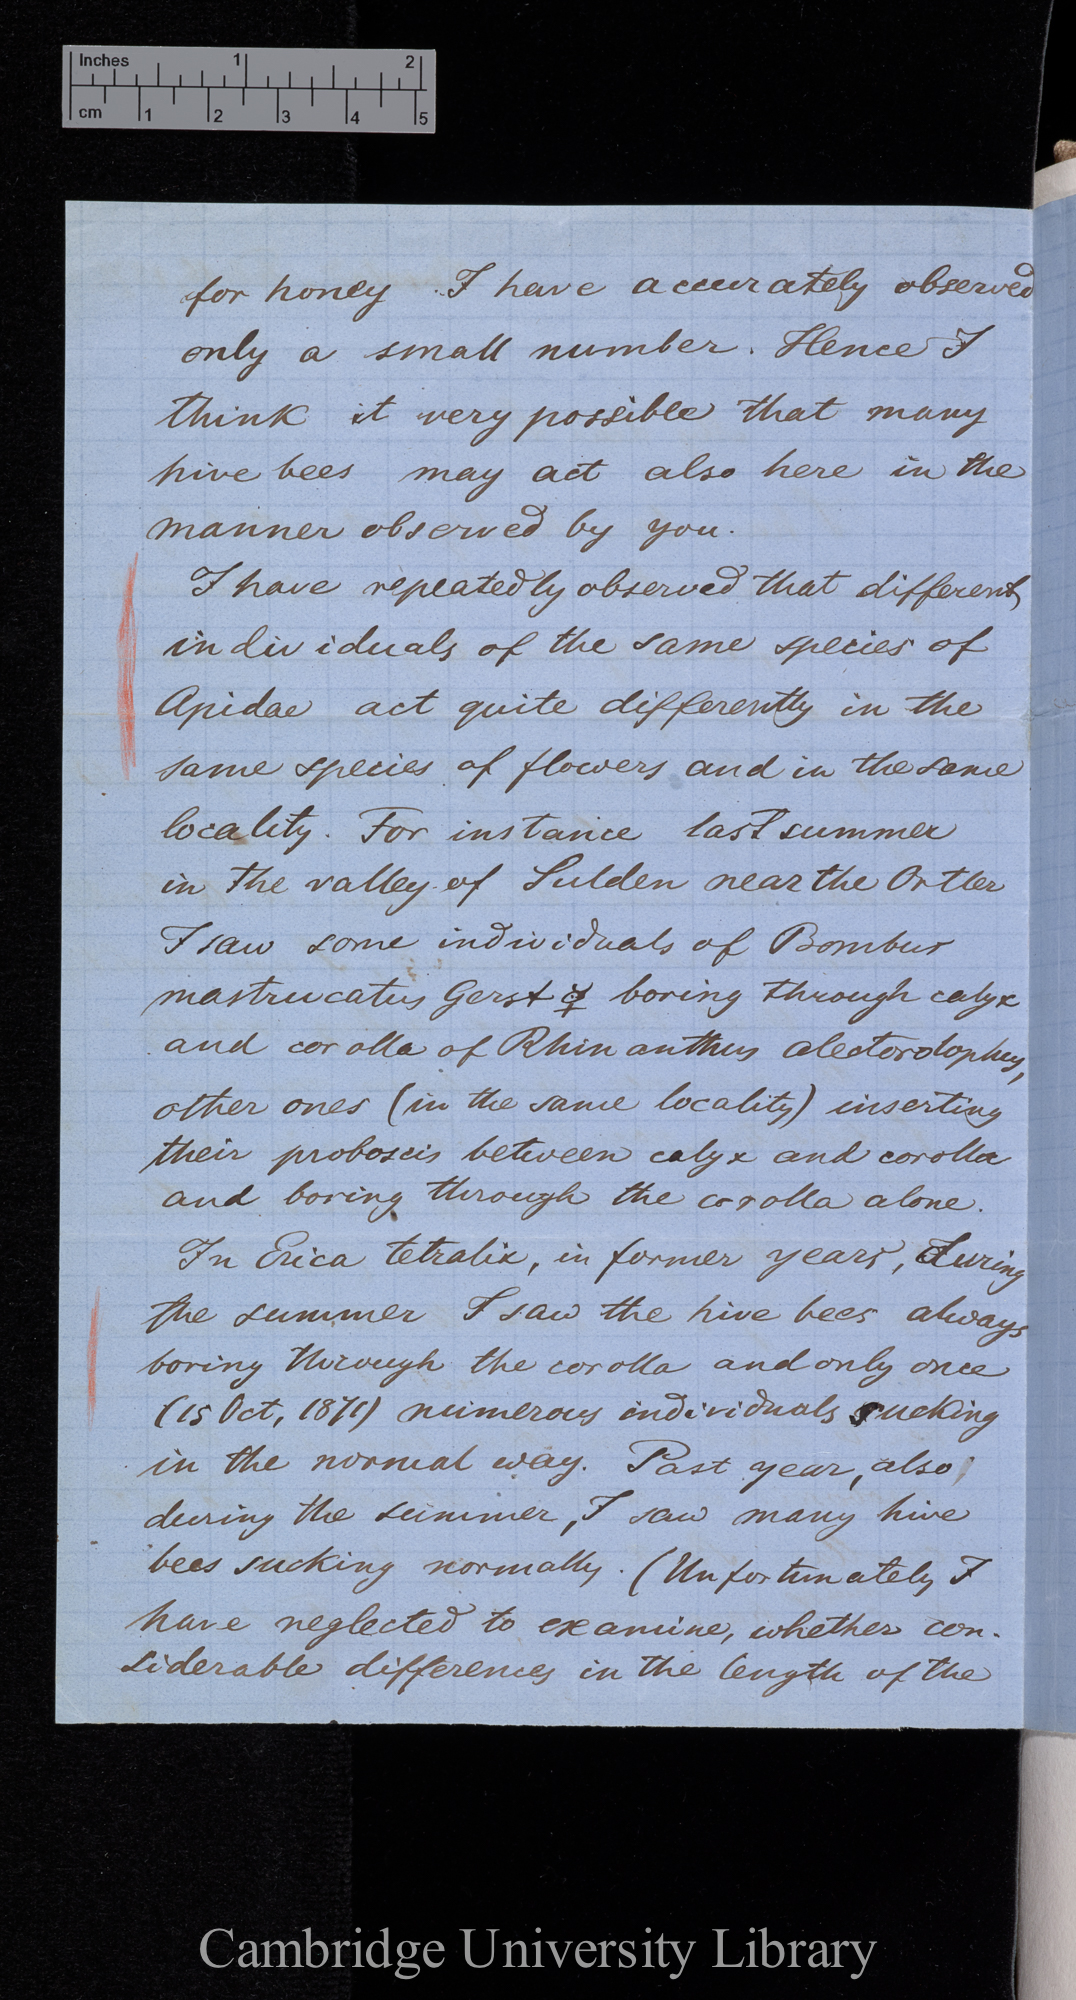 Inches 1 2
cm 1 2 3 4 5
for honey. I have accurately observed
only a small number. Hence I
think it very possible that many
hive bees may act also here in the
manner observed by you.
I have repeatedly observed that different
individuals of the same species of
Apidae act quite differently in the
same species of flowers and in the same
locality. For instance last summer
in the valley of Sulden near the Ortler
I saw some individuals of Bombus
mastrucatus Gerst ☿ boring through calyx
and corolla of Rhinanthus alectorolophus,
other ones (in the same locality) inserting
their proboscis between calyx and corolla
and boring through the corolla alone.
In Erica tetralix, in former years, during
the summer I saw the hive bees always
boring through the corolla and only once
(15 Oct, 1871) numerous individuals sucking
in the normal way. Past year, also,
during the summer, I saw many hive
bees sucking normally. (Unfortunately I
have neglected to examine, whether con-
siderable differences in the length of the
Cambridge University Library